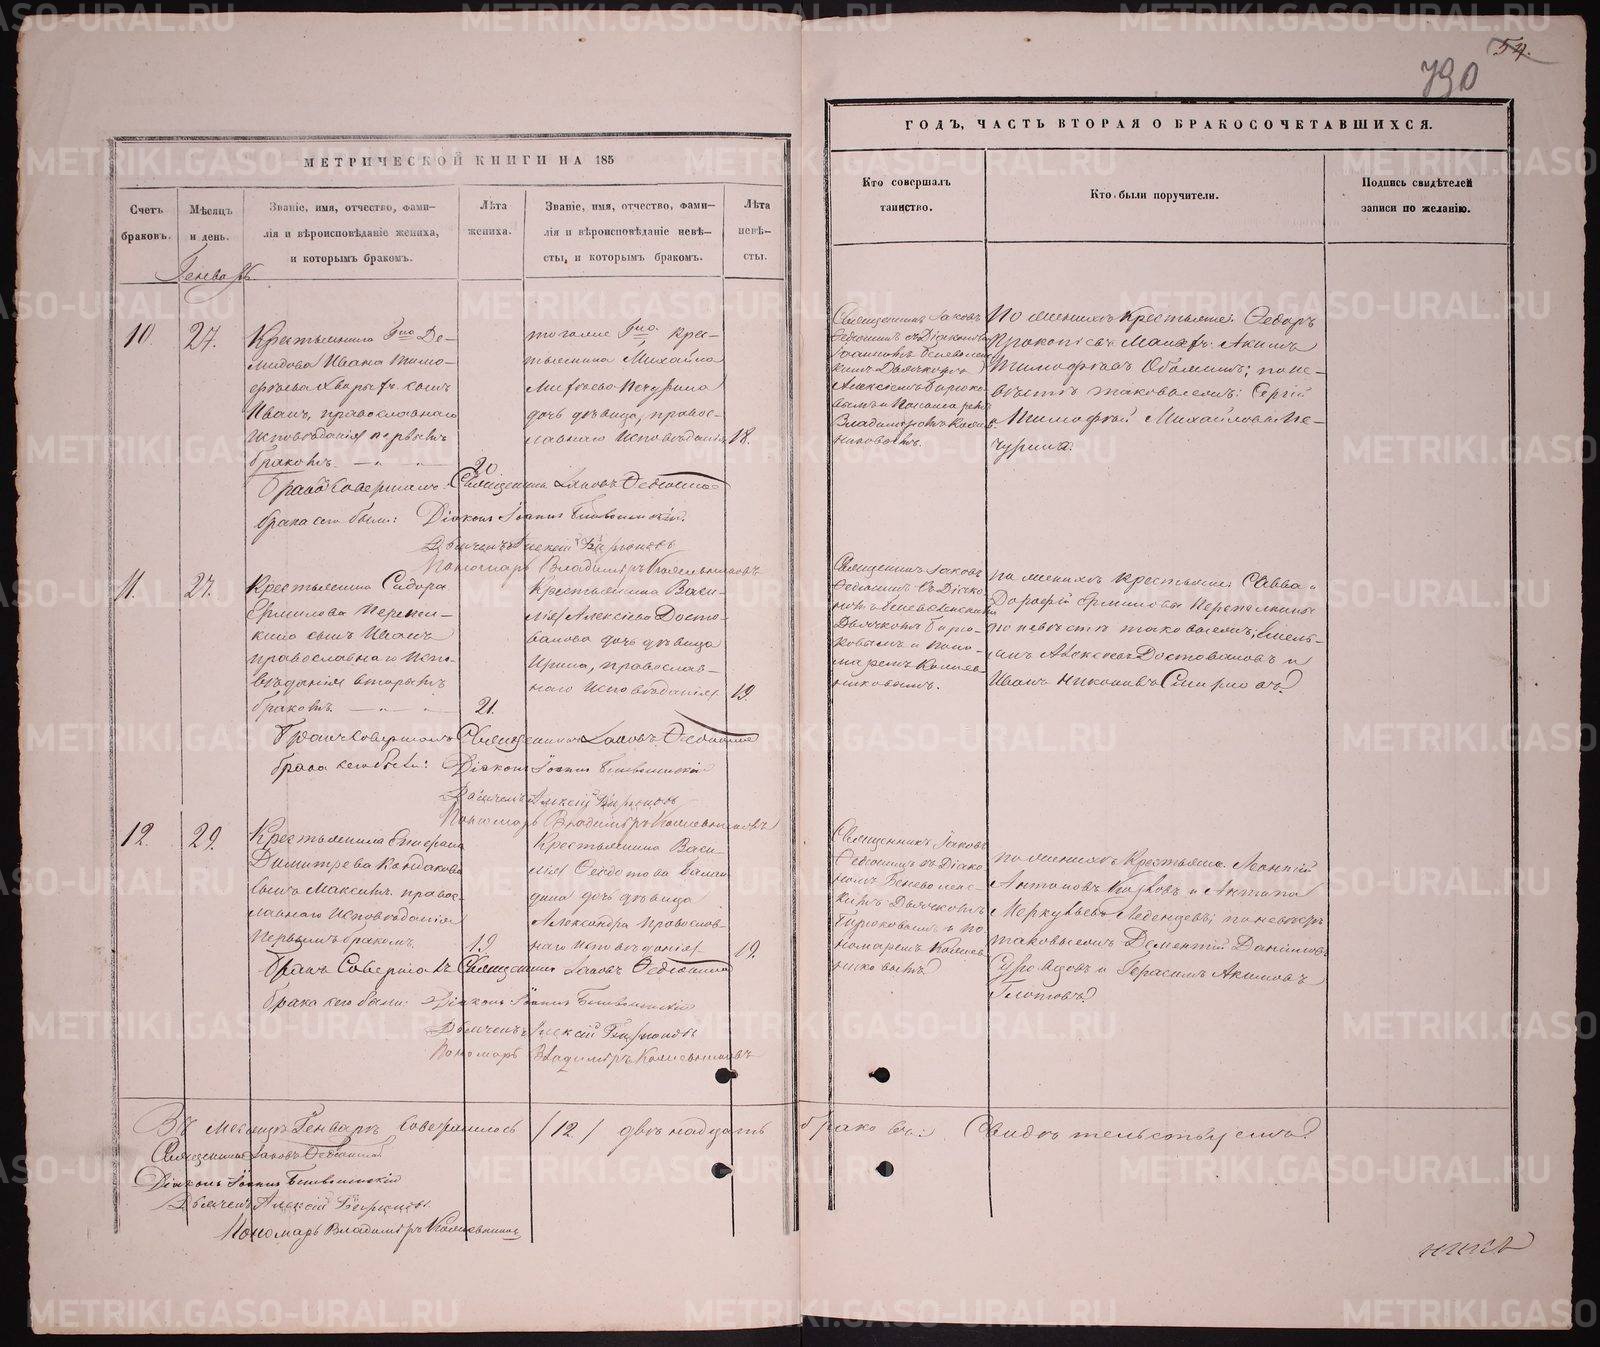 54.
790
МЕТРИЧЕСКОЙ КНИГИ НА 185
ГОДЪ, ЧАСТЬ ВТОРАЯ О БРАКОСОЧЕТАВШИХСЯ.
Счетъ браковъ.
Мѣсяцъ и день.
Званіе, имя, отчество, фами-
лія и вѣроисповѣданіе жениха,
и которымъ бракомъ.
Лѣта жениха.
Званіе, имя, отчество, фами-
лія и вѣроисповѣданіе невѣ-
сты, и которымъ бракомъ.
Лѣта невѣ-
сты.
Кто совершалъ
таинство.
Кто были поручители.
Подпись свидѣтелей
записи по желанію.
Генварь
10.
27.
Крестьянина Гно Де-
мидова Ивана Тимо-
фѣева сынъ
Иванъ, православнаго
исповѣданія первымъ
бракомъ.
20
тогоже Гно. крес-
тьянина Михайла
Печурина
дочь дѣвица, правос-
лавнаго исповѣданія
18.
Священникъ Іаковъ
Федюшинъ съ Діакономъ
Іоанномъ Беневолен-
скимъ Дьячкомъ
Алексѣемъ Бирюко-
вымъ и Пономаремъ
Владиміромъ
По женихѣ Крестьяне: Федоръ
Прокопіевъ Акимъ
Тимофѣевъ по не-
вѣстѣ таковыежъ: Сергій
и Тимофѣй Михайловы Пе-
чурины.
Бракъ совершалъ: Священникъ Іаковъ Федюшинъ
брака сего были: Діаконъ Іоаннъ Беневоленскій.
Дьячекъ Алексій Бирюковъ
Пономарь Владиміръ
11.
27.
Крестьянина Сидора
Ермилова Перепел-
кина сынъ Иванъ
православнаго испо-
вѣданія вторымъ
бракомъ.
21.
Крестьянина Васи-
лія Алексѣева Досто-
валова дочь дѣвица
Ирина, православ-
наго исповѣданія
19.
Священникъ Іаковъ
Федюшинъ съ Діако-
номъ Беневоленскимъ
Дьячкомъ Бирю-
ковымъ и Поно-
маремъ
по женихѣ Крестьяне: Савва и
Дорофій Ермиловы Перепелкины
по невѣстѣ таковыежъ; Емель-
янъ Алексѣевъ Достоваловъ и
Иванъ Никоновъ Смирновъ.
Бракъ совершалъ Священникъ Іаковъ Федюшинъ
брака сего были: Діаконъ Іоаннъ Беневоленскій
Дьячекъ Алексій Бирюковъ
Пономарь Владиміръ
12.
29.
Крестьянина
Димитрева Кандакова
сынъ Максимъ правос-
лавнаго исповѣданія
первымъ бракомъ.
19
Крестьянина Васи-
лія Федотова
дочь дѣвица
Александра православ-
наго исповѣданія
19.
Священникъ Іаковъ
Федюшинъ съ Діако-
номъ Беневолен-
скимъ Дьячкомъ
Бирюковымъ и По-
номаремъ
по женихѣ Крестьяне: Леонтій
Антоновъ и Антипа
Меркурьевъ Леденцевъ; по невѣстѣ
таковыежъ Дементій Даниловъ
и Герасимъ Акимовъ
Глотовъ.
Бракъ совершалъ Священникъ Іаковъ Федюшинъ
брака сего были: Діаконъ Іоаннъ Беневоленскій
Дьячекъ Алексій Бирюковъ
Пономарь Владиміръ
Въ мѣсяцѣ Генварѣ совершилось /12/ двѣнадцать браковъ. Свидѣтельствуемъ:
Священникъ Іаковъ Федюшинъ
Діаконъ Іоаннъ Беневоленскій
Дьячекъ Алексій Бирюковъ.
Пономарь Владиміръ
METRIKI.GASO-URAL.RU